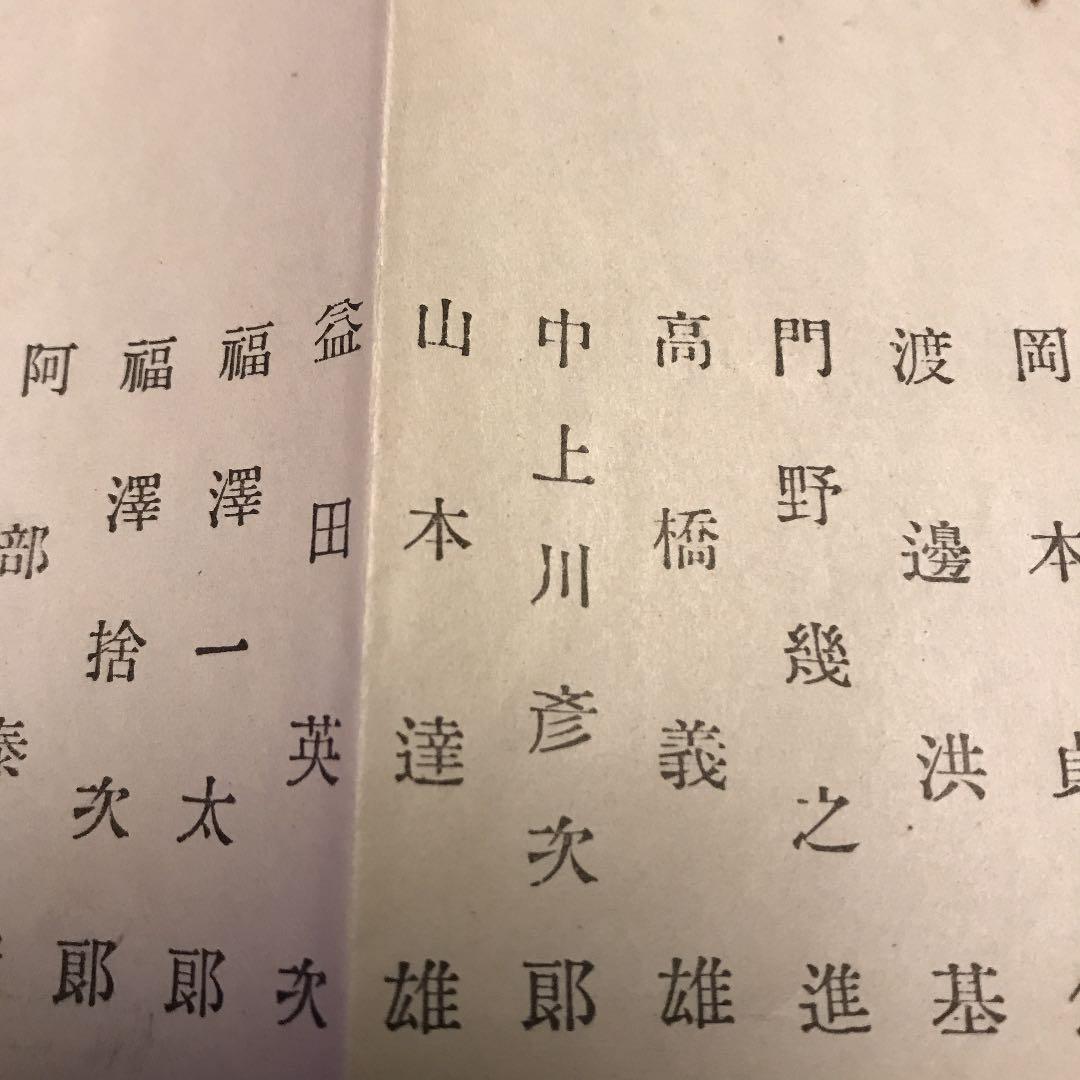 岡本貞
渡邊洪基
門野幾之進
高橋義雄
中上川彦次郎
山本達雄
益田英次
福澤一太郎
福澤捨次郎
阿部泰